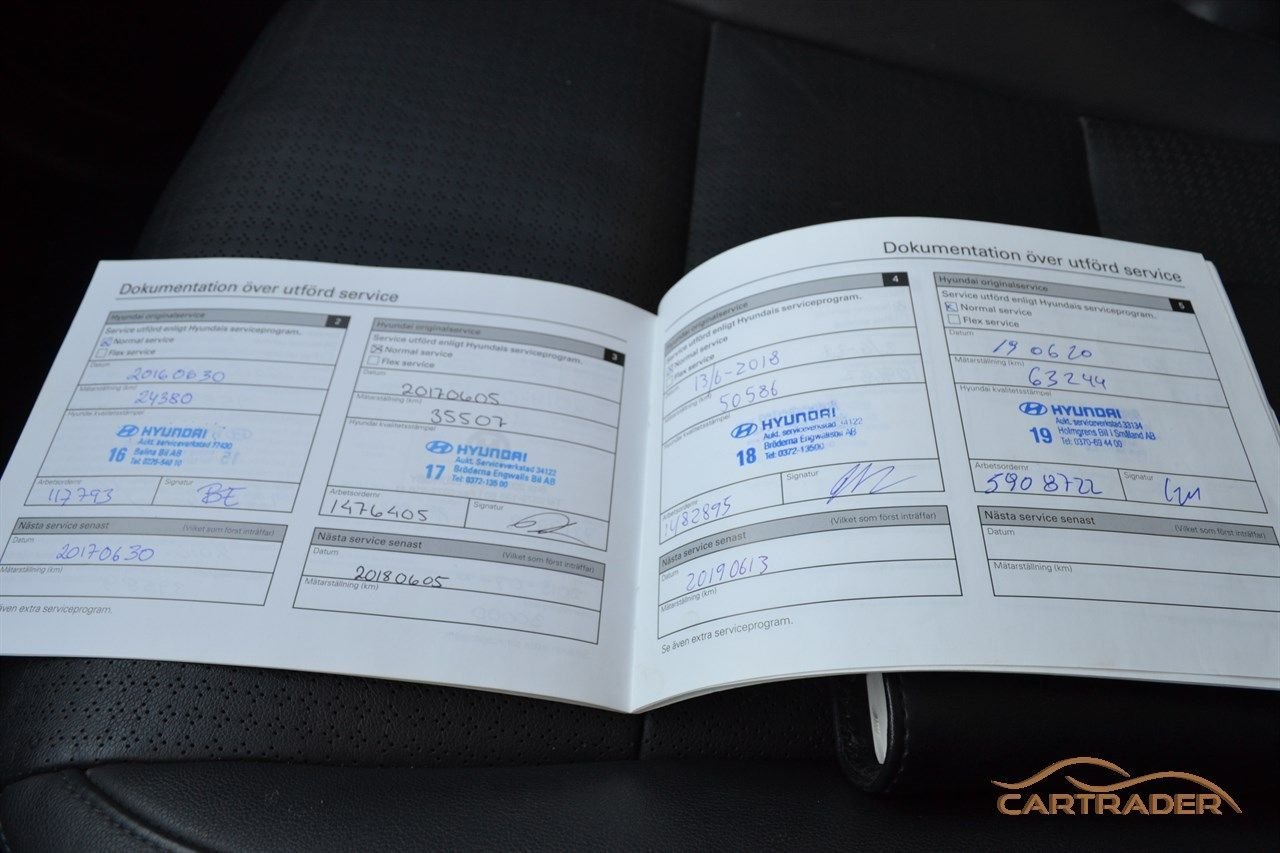 Dokumentation över utförd service
Hyundai originalservice 2
Service utförd enligt Hyundais serviceprogram.
Normal service
Flex service
Datum
20160630
Mätarställning (km)
24380
Hyundai kvalitetsstämpel
HYUNDAI
Aukt. serviceverkstad
16 Bilia AB
Arbetsordernr
117793
Signatur
BE
Nästa service senast (Vilket som först inträffar)
Datum
20170630
Mätarställning (km)
även extra serviceprogram.
Hyundai originalservice 3
Service utförd enligt Hyundais serviceprogram.
Normal service
Flex service
Datum
20170605
Mätarställning (km)
35507
Hyundai kvalitetsstämpel
HYUNDAI
Aukt. Serviceverkstad 34122
17 Bröderna Engwalls Bil AB
Tel: 0372-135 00
Arbetsordernr
1476405
Signatur
Nästa service senast (Vilket som först inträffar)
Datum
20180605
Mätarställning (km)
Dokumentation över utförd service
Hyundai originalservice 4
Service utförd enligt Hyundais serviceprogram.
Normal service
Flex service
13/6-2018
Mätarställning (km)
50586
Hyundai kvalitetsstämpel
HYUNDAI
Aukt. serviceverkstad 34122
18 Bröderna Engwallsbil AB
Tel: 0372-13500
Arbetsordernr
1482895
Signatur
Nästa service senast (Vilket som först inträffar)
Datum
20190613
Mätarställning (km)
Se även extra serviceprogram.
Hyundai originalservice 5
Service utförd enligt Hyundais serviceprogram.
Normal service
Flex service
Datum
190620
Mätarställning (km)
63244
Hyundai kvalitetsstämpel
HYUNDAI
Aukt. serviceverkstad 33134
19 Holmgrens Bil i Småland AB
Tel: 0370-69 44 00
Arbetsordernr
5908722
Signatur
Nästa service senast (Vilket som först inträffar)
Datum
Mätarställning (km)
CARTRADER